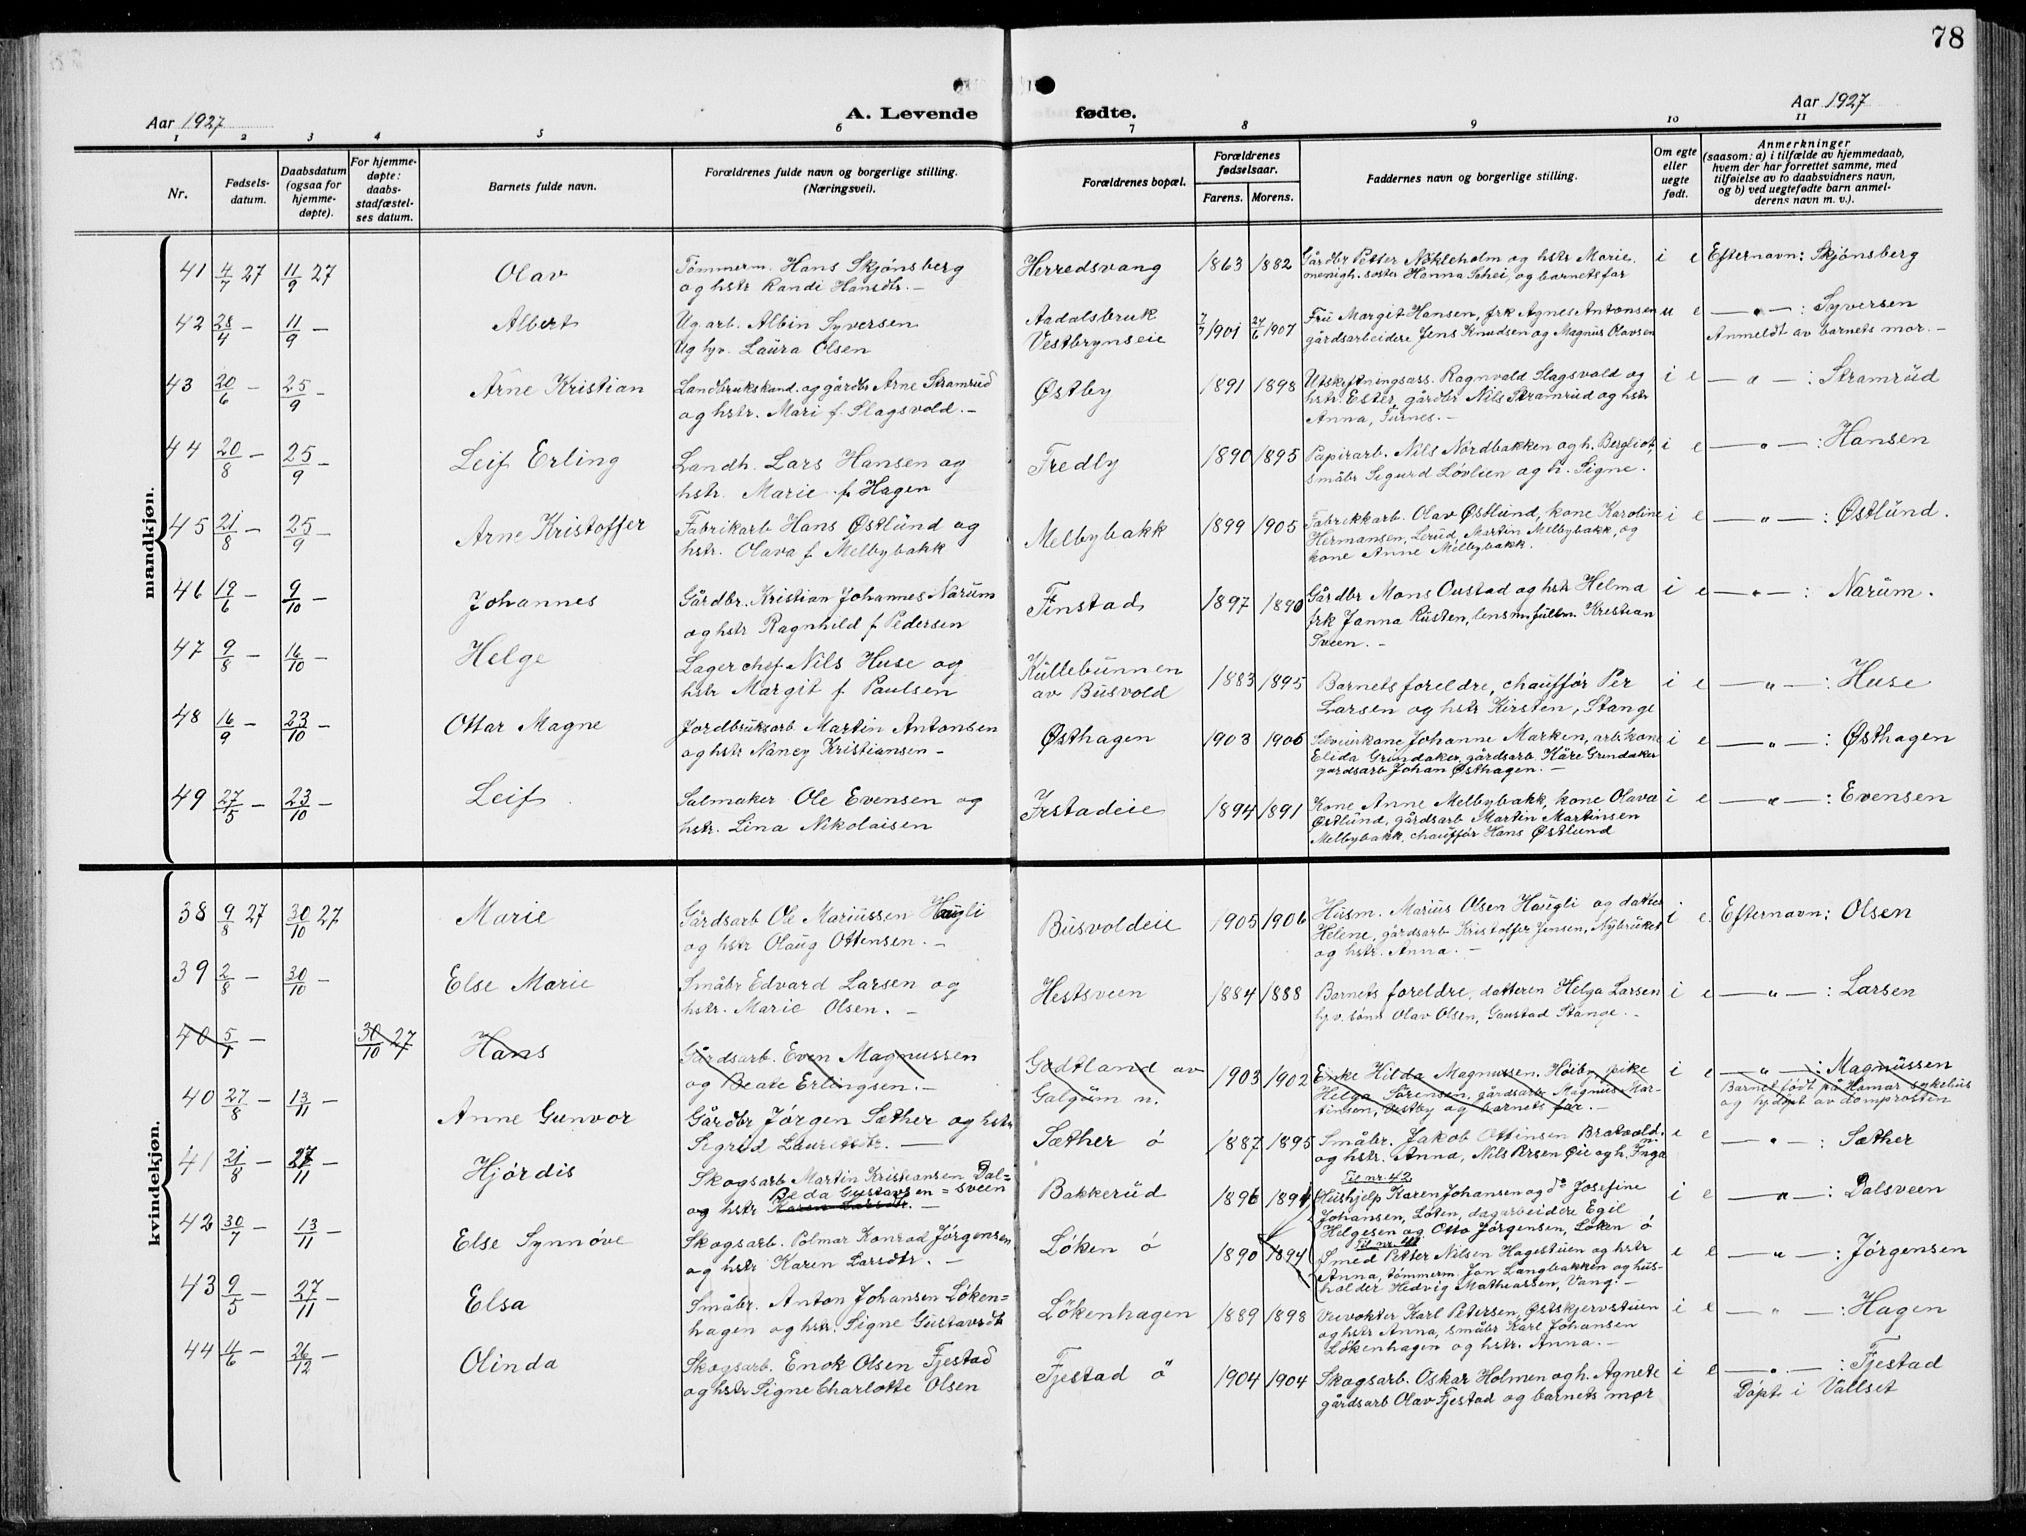 78
A. Levende fødte.
Aar 1927
Aar 1927
1 2 3 4 5 6 7 8 9 10 11
Nr.
Fødsels-
datum.
Daabsdatum
(ogsaa for
hjemme-
døpte).
For hjemme-
døpte:
daabs-
stadfæstel-
ses datum.
Barnets fulde navn.
Forældrenes fulde navn og borgerlige stilling.
(Næringsvei).
Forældrenes bopæl.
Forældrenes
fødselsaar.
Farens. Morens.
Faddernes navn og borgerlige stilling.
Om egte
eller
uegte
født.
Anmerkninger
(saasom: a) i tilfælde av hjemmedaab,
hvem der har forrettet samme, med
tilføielse av to daabsvidners navn,
og b) ved uegtefødte barn anmel-
derens navn m. v.).
mandkjøn.
41 4/7 27 11/9 27 Olav
Tømmerm. Hans Skjønsberg
og hstr Randi Hansdtr. —
Herredsvang 1863 1882
Gårdbr Petter Nøkleholm og hstr Marie,
menigh. søster Hanna Schei, og barnets far
i e Efternavn: Skjønsberg
42 28/4 — 11/9 — Albert
Ug arb. Albin Syversen
Ug tjv. Laura Olsen
Aadalsbruk
Vestbrynseie
7/7 1901 24/6 1907
Fru Margit Hansen, frk Agnes Antonsen
gårdsarbeidere Jens Knudsen og Magnus Olavsen
u e — " — : Syversen
Anmeldt av barnets mor. —
43 20/6 — 25/9 — Arne Kristian
Landbrukskand. og gårdbr Arne Stramrud
og hstr. Mari f. Slagsvold. —
Østby 1891 1898
Utskiftningsass. Ragnvald Slagsvold og
hstr. Ester, gårdbr Nils Stramrud og hstr
Anna, Furnes. —
i e — " — : Stramrud
44 20/8 — 25/9 — Leif Erling
Landh. Lars Hansen og
hstr. Marie f. Hagen
Fredly 1890 1895
Papirarb. Nils Nordbakken og h. Bergliot,
småbr Sigurd Løvlien og h. Signe.
i e — " — : Hansen
45 21/8 — 25/9 — Arne Kristoffer
Fabrikarb Hans Østlund og
hstr. Olava f Melbybakk
Melbybakk 1899 1905
Fabrekkarb. Olav Østlund, kone Karoline
Hermansen, Lerud, Martin Melbybakk, og
kone Anne Melbybakk.
i e — " — : Østlund.
46 19/6 — 9/10 — Johannes
Gårdbr. Kristian Johannes Narum
og hstr Ragnhild f Pedersen
Finstad 1897 1890
Gårdbr Mons Oustad og hstr Helma
frk Janna Rusten, lensm.fullm. Kristian
Sveen. —
i e — " — : Narum.
47 9/8 — 16/10 — Helge
Lagerchef Nils Huse og
hstr Margit f. Paulsen
Kullebunnen
av Busvold
1883 1895
Barnets foreldre, chauffør Per
Larsen og hstr Kirsten, Stange
i e — " — : Huse
48 16/9 — 23/10 — Ottar Magne
Jordbruksarb Martin Antonsen
og hstr Nancy Kristiansen —
Østhagen 1903 1906
Johanne Marken, arb.kone
Elida Grindaker, gårdsarb. Kåre Grindaker
gårdsarb Johan Østhagen. —
i e — " — : Østhagen
49 27/5 — 23/10 — Leif
Salmaker Ole Evensen og
hstr. Lina Nikolaisen
Irstadeie 1894 1891
Kone Anne Melbybakk, kone Olava
Østlund, gårdsarb Martin Martinsen
Melbybakk, chauffør Hans Østlund
i e — " — : Evensen
kvindekjøn.
38 9/8 27 30/10 27 Marie
Gårdsarb Ole Mariussen Haugli
og hstr Olaug Ottensen. —
Busvoldeie 1905 1906
Husm. Marius Olsen Haugli og datter
Helene, gårdsarb Kristoffer Jensen, Nybruket
og hstr. Anna. —
i e Efternavn: Olsen
39 2/8 — 30/10 — Else Marie
Småbr Edvard Larsen og
hstr. Marie Olsen. —
Hestsveen 1884 1888
Barnets foreldre, datteren Helga Larsen
tjv. sønn Olav Olsen, Gaustad Stange. —
i e — " — : Larsen
40 5/1 — 30/10 27 Hans
Gårdsarb. Even Magnussen
og Beate Erlingsen. —
Godtland av
Galgum n.
1903 1902
Enke Hilda Magnussen, Høiby, pike
Helga Sørensen, gårdsarb Magnus Mar-
tinsen, Østby og barnets far. —
i e — " — : Magnussen
Barnet født på Hamar sykehus
og hj.døpt av domprosten
40 27/8 — 13/11 — Anne Gunvor
Gårdbr Jørgen Sæther og hstr
Sigrid Lauritsdtr. —
Sæther ø 1887 1895
Småbr. Jakob Ottinsen Bratvold n.
og hstr. Anna, Nils Persen Øie og h. Inga
i e — " — : Sæther
41 21/8 — 27/11 — Hjørdis
Skogsarb Martin Kristiansen Dal=
Beda Gustavsen = sveen
og hstr Karen Larsdtr. —
Bakkerud 1896 1894
Til nr. 42
Hushjelp Karen Johansen og do Josefine
Johansen, Løten, dagarbeidere Egil
Helgesen og Otto Jørgensen, Løken ø
i e — " — : Dalsveen
42 30/7 — 13/11 — Else Synnøve
Skogsarb. Polmar Konrad Jørgensen
og hstr Karen Larsdtr. —
Løken ø 1890 1894
Til nr. 41
Smed Petter Nilsen Hagestuen og hstr
Anna, tømmerm. Jon Langbakken og hus-
holder Hedvig Mathiassen, Vang. —
i e — " — : Jørgensen
43 9/5 — 27/11 — Elsa
Småbr. Anton Johansen Løken=
hagen og hstr. Signe Gustavsdtr
Løkenhagen 1889 1898
Veivokter Karl Petersen, Østskjervstuen
og hstr Anna, småbr Karl Johansen
Løkenhagen og hstr. Anna. —
i e — " — : Hagen
44 4/6 — 26/12 — Olinda
Skogsarb. Enok Olsen Fjestad
og hstr Signe Charlotte Olsen
Fjestad ø 1904 1904
Skogsarb. Oskar Holmen og h. Agnete
gårdsarb Olav Fjestad og barnets mor
i e — " — : Fjestad
Døpt i Vallset